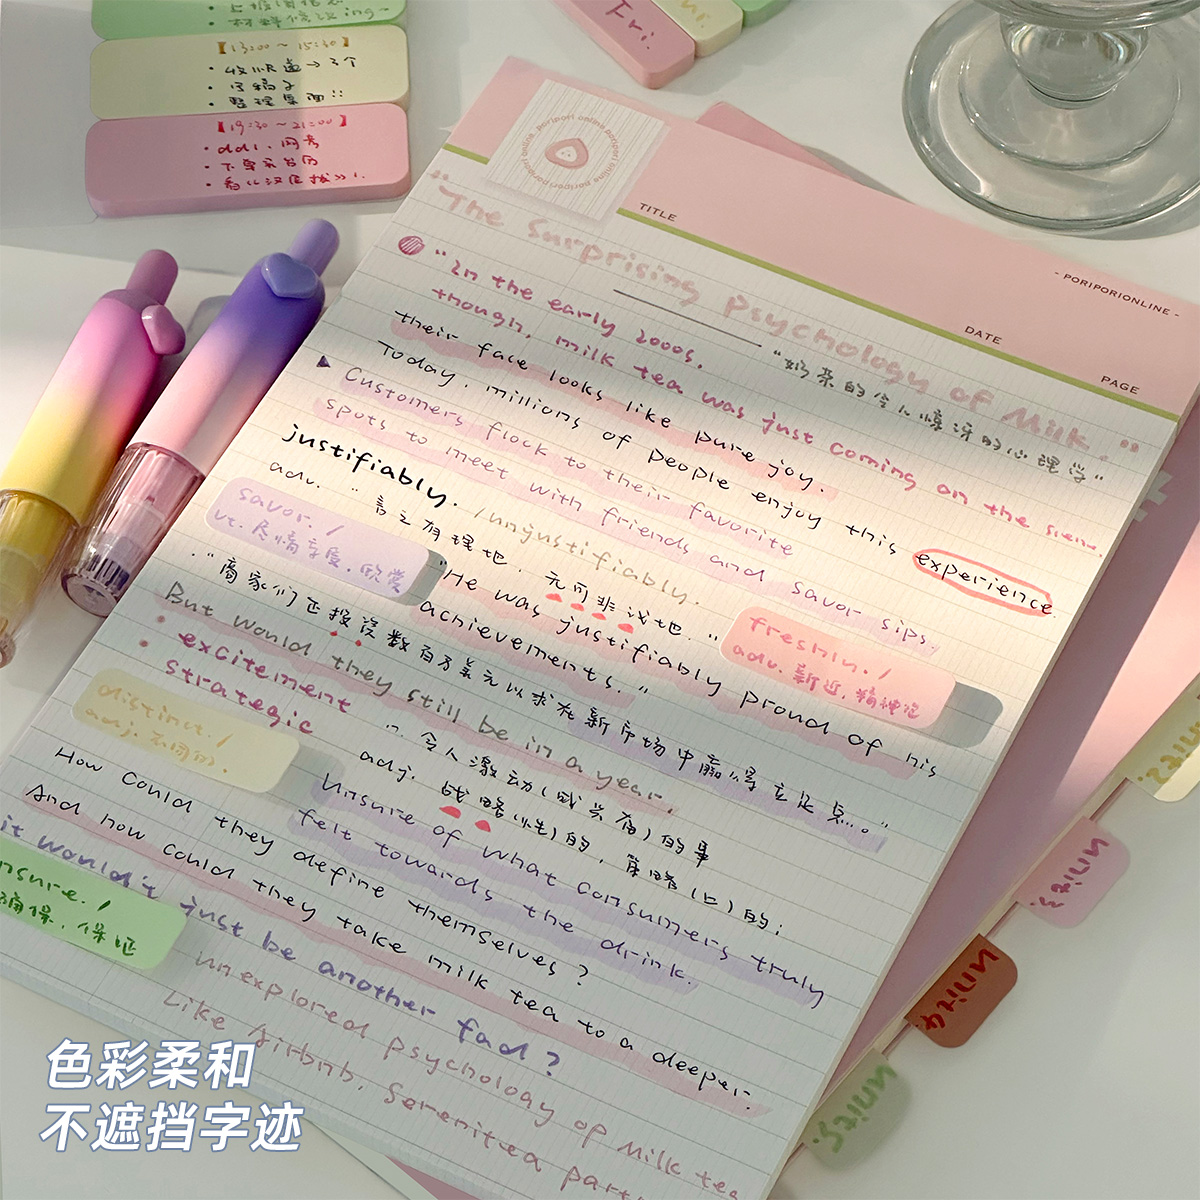 【13:00～15:30】
【19:30～21:00】
Fri.
poripori online poripori online poripori online
TITLE
- PORIPORIONLINE -
DATE
PAGE
"The Surprising Psychology of Milk."
"奶茶的令人惊讶的心理学"
"In the early 2000s.
though, milk tea was just coming on the scene.
their face looks like pure joy.
Today, millions of people enjoy this experience
Customers flock to their favorite
spots to meet with friends and savor sips.
justifiably. /unjustifiably.
adv. "言之有理地, 无可非议地."
savor. /
vt. 尽情享受, 欣赏
"He was justifiably proud of his
achievements."
freshin. /
adv. 新近, 精神饱
"商家们正投资数百万美元以求在新市场中赢得立足点。"
But would they still be in a year.
excitement
"令人激动(或兴奋)的事
strategic
adj. 战略(性)的, 策略(上)的;
distinct. /
adj. 不同的.
Unsure of what consumers truly
felt towards the drink.
How could they define themselves?
And how could they take milk tea to a deeper.
it wouldn't just be another fad?
nsure. /
确保, 保证
unexplored psychology of milk tea
Like Airbnb, Serenitea part
unit2.
unit3.
unit4.
unit5.
色彩柔和
不遮挡字迹